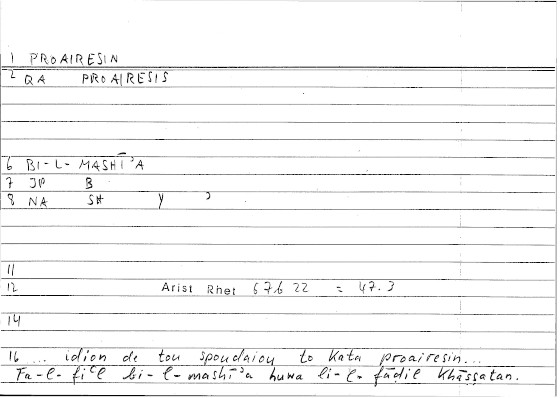 1 PROAIRESIN
2 QA PROAIRESIS
6 BI-L-MASHĪ'A
7 JP B
8 NA SH Y '
11
12 Arist Rhet 67b 22 = 47.3
14
16 ... idion de tou spoudaiou to kata proairesin...
Fa-l-fiʿl bi-l-mashī'a huwa li-l-fāḍil khāṣṣatan.